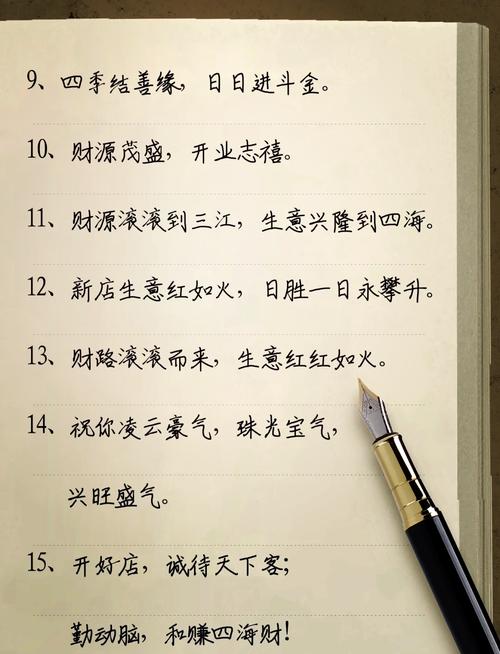 9、四季结善缘，日日进斗金。
10、财源茂盛，开业志禧。
11、财源滚滚到三江，生意兴隆到四海。
12、新店生意红如火，日胜一日永攀升。
13、财路滚滚而来，生意红红如火。
14、祝你凌云豪气，珠光宝气，
兴旺盛气。
15、开好店，诚待天下客；
勤动脑，和赚四海财！